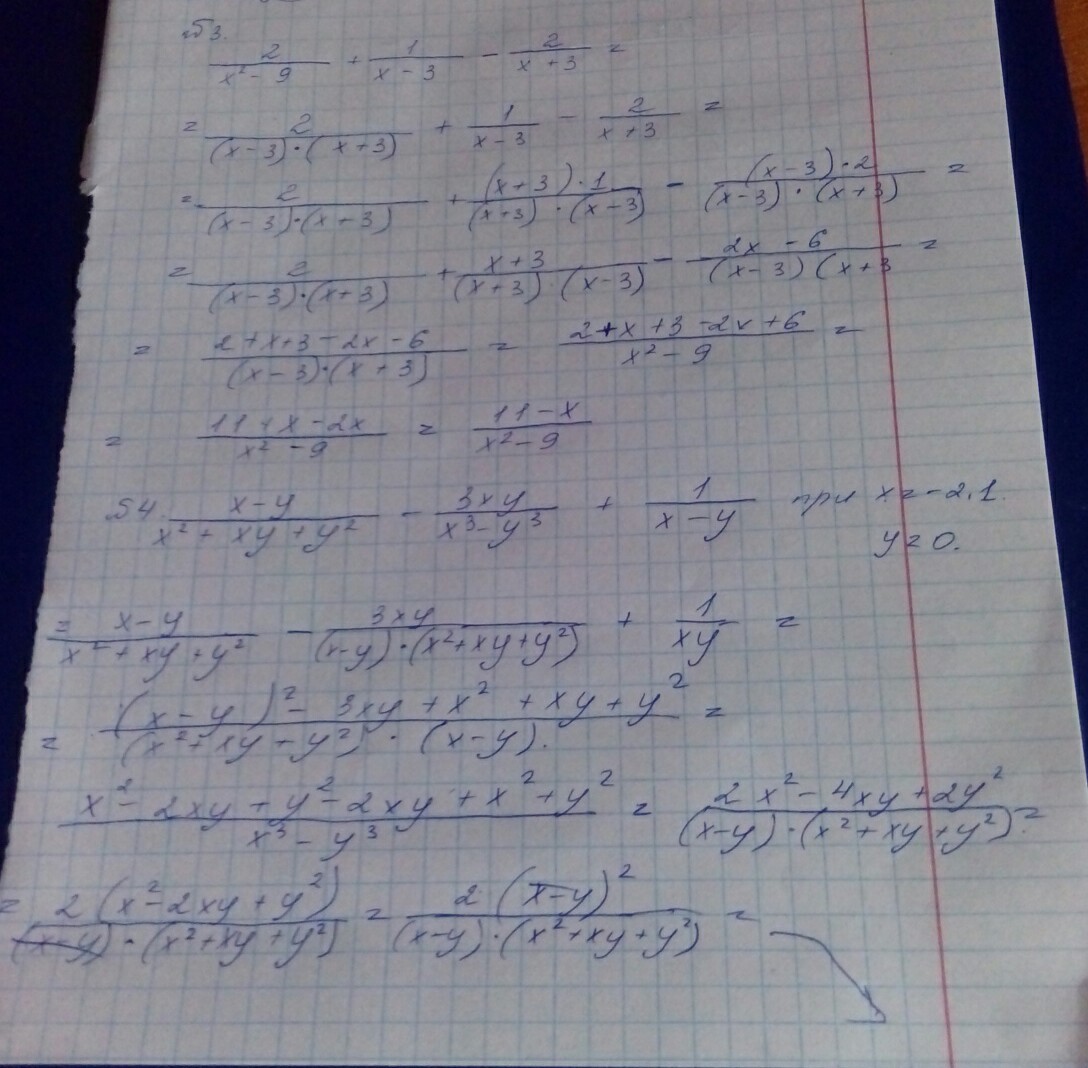 №3.
2/(x² - 9) + 1/(x - 3) - 2/(x + 3) =
= 2/((x-3)·(x+3)) + 1/(x-3) - 2/(x+3) =
= 2/((x-3)·(x+3)) + ((x+3)·1)/((x+3)·(x-3)) - ((x-3)·2)/((x-3)·(x+3)) =
= 2/((x-3)·(x+3)) + (x+3)/((x+3)·(x-3)) - (2x-6)/((x-3)(x+3 =
= (2+x+3-2x-6)/((x-3)·(x+3)) = (2+x+3-2x+6)/(x²-9) =
= (11+x-2x)/(x²-9) = (11-x)/(x²-9)
№4 (x-y)/(x²+xy+y²) - 3xy/(x³-y³) + 1/(x-y) при x=-2,1.
y=0.
= (x-y)/(x²+xy+y²) - 3xy/((x-y)·(x²+xy+y²)) + 1/(xy) =
= ((x-y)²-3xy+x²+xy+y²)/((x²+xy+y²)·(x-y)). =
(x²-2xy+y²-2xy+x²+y²)/(x³-y³) = (2x²-4xy+2y²)/((x-y)·(x²+xy+y²)) =
= (2(x²-2xy+y²))/((x-y)·(x²+xy+y²)) = (2(x-y)²)/((x-y)·(x²+xy+y²)) =